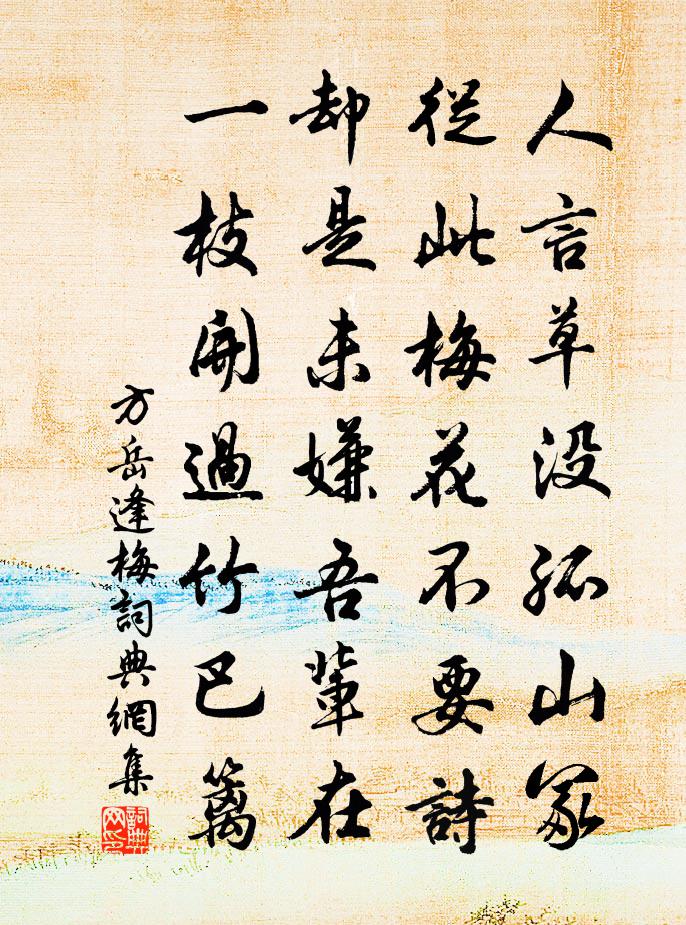 人言草没孤山冢
從此梅花不要詩
却是未嫌吾輩在
一枝開過竹巴篱
方岳逢梅詞典網集
詞典网印